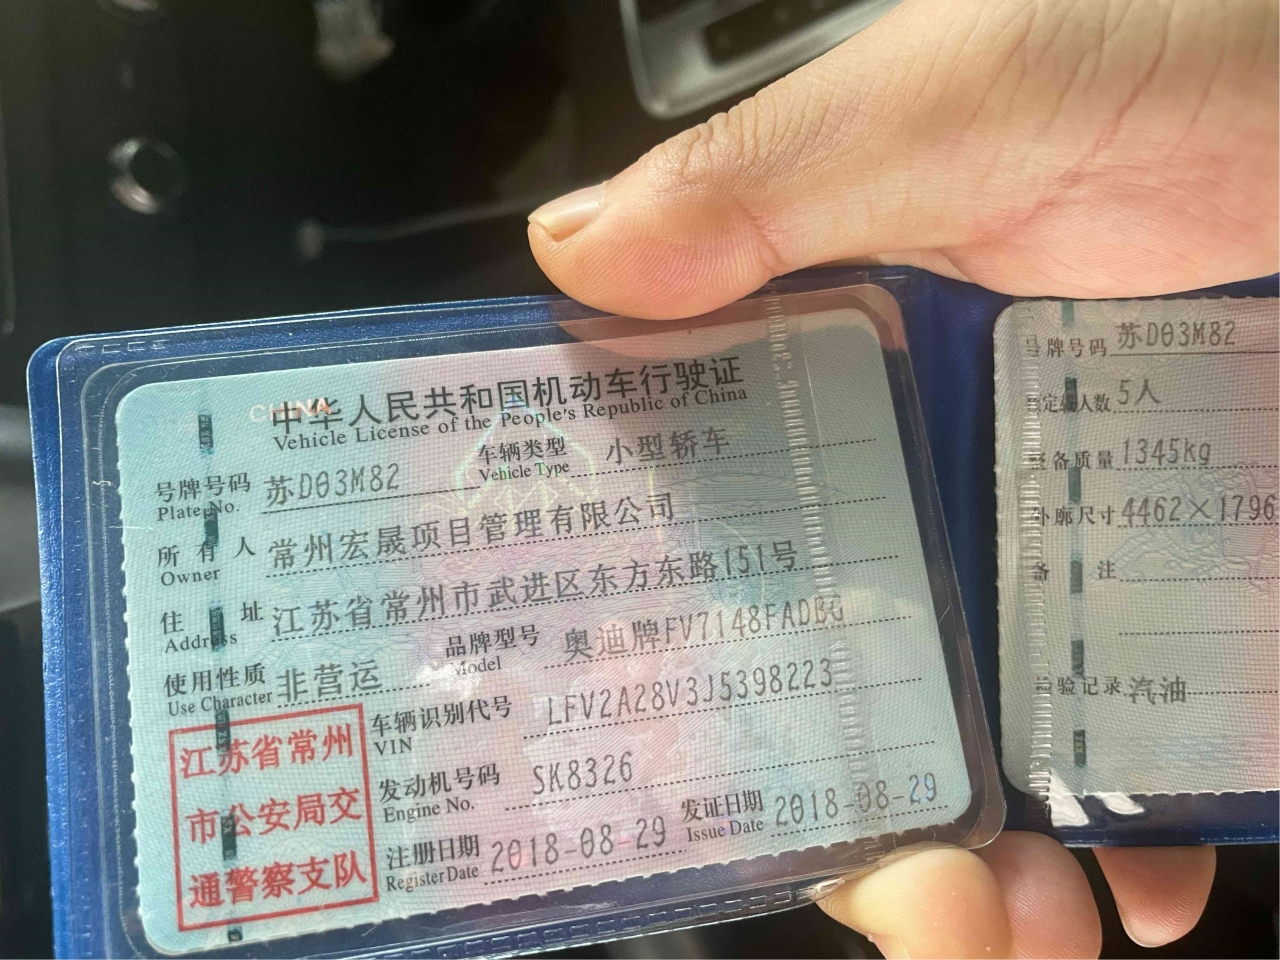 中华人民共和国机动车行驶证
Vehicle License of the People's Republic of China
号牌号码 苏D03M82 车辆类型 小型轿车
Plate No. Vehicle Type
所有人 常州宏晟项目管理有限公司
Owner
住址 江苏省常州市武进区东方东路151号
Address
使用性质 非营运 品牌型号 奥迪牌FV7148FADBG
Use Character Model
车辆识别代号 LFV2A28V3J5398223
VIN
发动机号码 SK8326
Engine No.
注册日期 2018-08-29 发证日期 2018-08-29
Register Date Issue Date
江苏省常州
市公安局交
通警察支队
CHINA
号牌号码 苏D03M82
核定载人数 5人
整备质量 1345kg
外廓尺寸 4462×1796
备注
检验记录 汽油